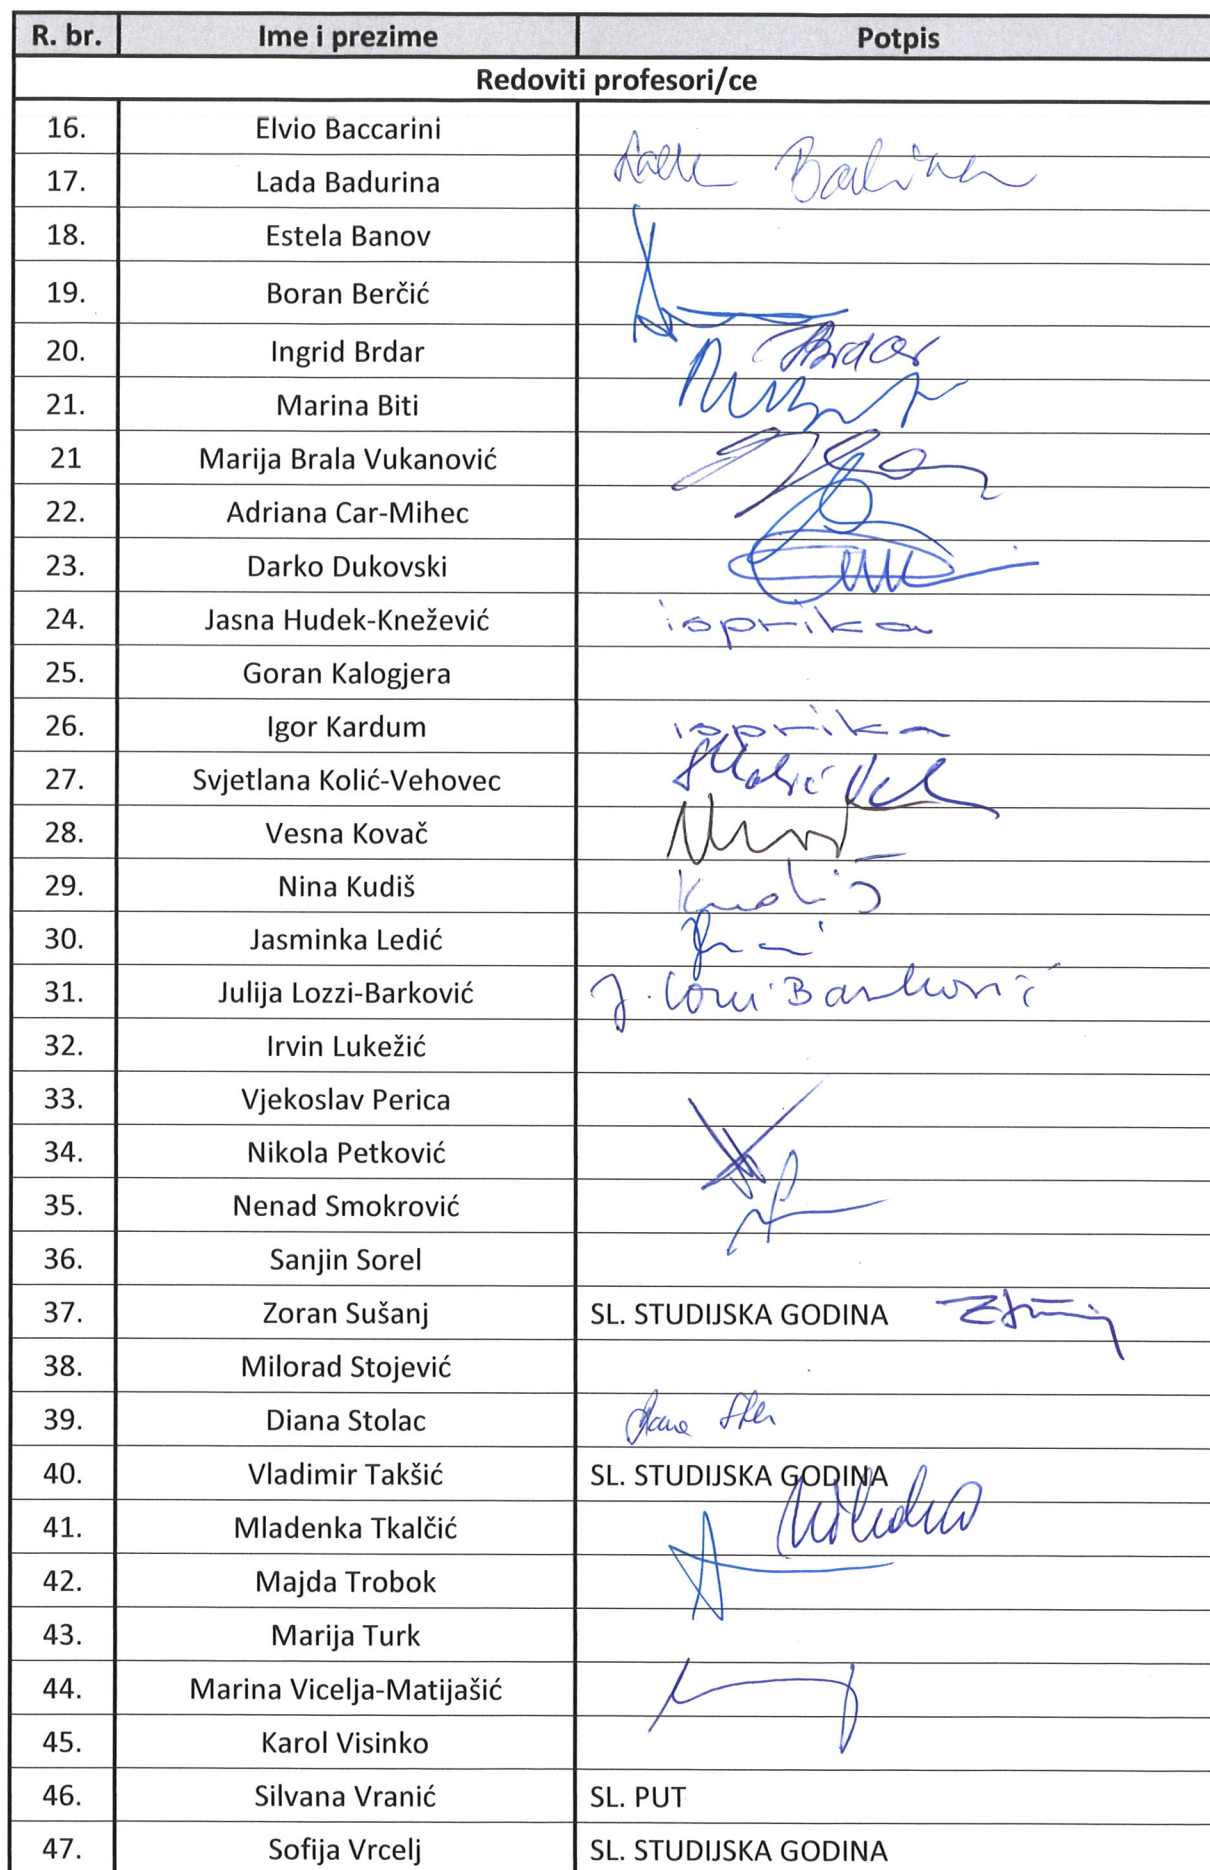 R. br. Ime i prezime Potpis
Redoviti profesori/ce
16. Elvio Baccarini
17. Lada Badurina
18. Estela Banov
19. Boran Berčić
20. Ingrid Brdar Brdar
21. Marina Biti
21 Marija Brala Vukanović
22. Adriana Car-Mihec
23. Darko Dukovski
24. Jasna Hudek-Knežević isprika
25. Goran Kalogjera
26. Igor Kardum isprika
27. Svjetlana Kolić-Vehovec
28. Vesna Kovač
29. Nina Kudiš Kudiš
30. Jasminka Ledić
31. Julija Lozzi-Barković J. Lozzi Barković
32. Irvin Lukežić
33. Vjekoslav Perica
34. Nikola Petković
35. Nenad Smokrović
36. Sanjin Sorel
37. Zoran Sušanj SL. STUDIJSKA GODINA
38. Milorad Stojević
39. Diana Stolac
40. Vladimir Takšić SL. STUDIJSKA GODINA
41. Mladenka Tkalčić
42. Majda Trobok
43. Marija Turk
44. Marina Vicelja-Matijašić
45. Karol Visinko
46. Silvana Vranić SL. PUT
47. Sofija Vrcelj SL. STUDIJSKA GODINA